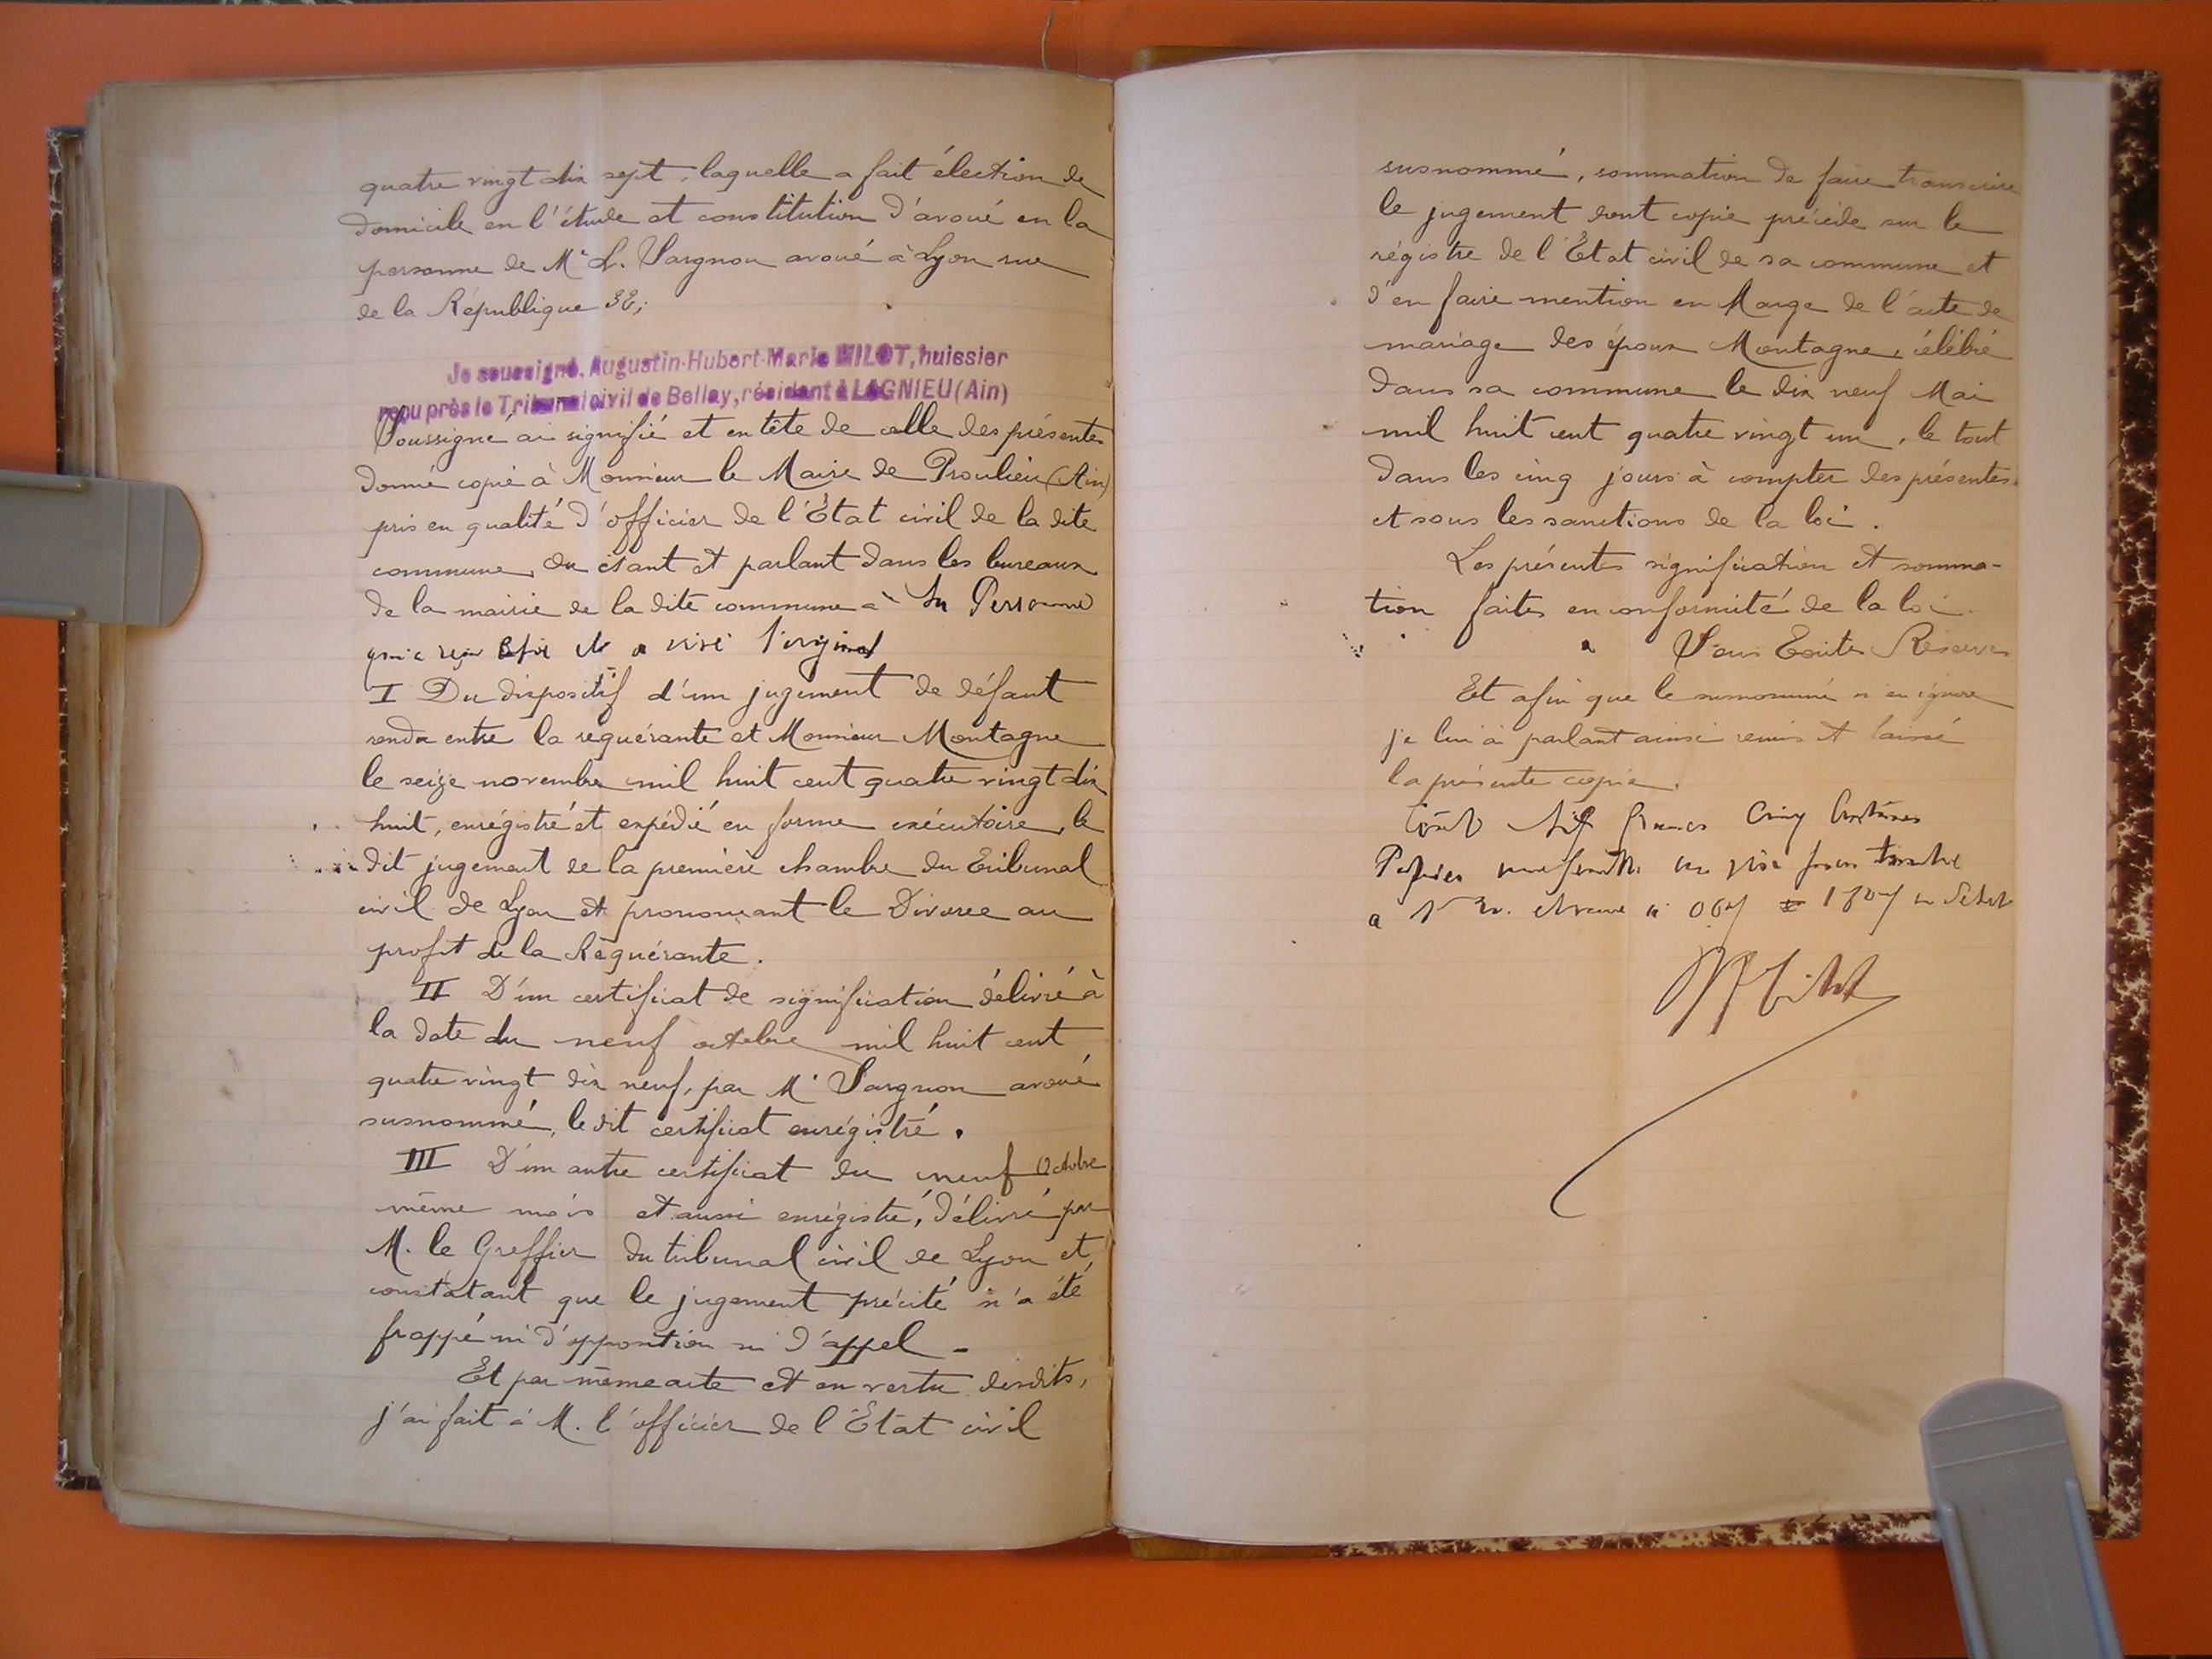 quatre vingt dix sept, laquelle a fait élection de
domicile en l'étude et constitution d'avoué en la
personne de Me L. Sargnon avoué à Lyon rue
de la République 32;
Je soussigné, Augustin-Hubert-Marie MILOT, huissier
reçu près le Tribunal civil de Belley, résidant à LAGNIEU (Ain)
Soussigné ai signifié et en tête de celle des présentes
donné copie à Monsieur le Maire de Proulieu (Ain)
pris en qualité d'officier de l'État civil de la dite
commune, où étant et parlant dans les bureaux
de la mairie de la dite commune à Sa Personne
qui a reçu copie et a visé l'original
I Du dispositif d'un jugement de défaut
rendu entre la requérante et Monsieur Montagne
le seize novembre mil huit cent quatre vingt dix
huit, enrégistré et expédié en forme exécutoire, le
dit jugement de la première chambre du Tribunal
civil de Lyon et prononçant le Divorce au
profit de la Réquérante.
II D'un certificat de signification délivré à
la date du neuf octobre mil huit cent
quatre vingt dix neuf, par Me Sargnon avoué
susnommé, le dit certificat enrégistré.
III D'un autre certificat du neuf Octobre
même mois et aussi enrégistré, délivré par
M. le Greffier du tribunal civil de Lyon et
constatant que le jugement précité n'a été
frappé ni d'opposition ni d'appel -
Et par même acte et en vertu desdits,
j'ai fait à M. l'officier de l'État civil
susnommé, sommation de faire transcrire
le jugement dont copie précède sur le
régistre de l'État civil de sa commune et
d'en faire mention en Marge de l'acte de
mariage des époux Montagne, célébré
dans sa commune le dix neuf Mai
mil huit cent quatre vingt un, le tout
dans les cinq jours à compter des présentes
et sous les sanctions de la loi.
Les présentes signification et somma-
tion faites en conformité de la loi
Sous Toutes Réserves
Et afin que le susnommé n'en ignore
je lui ai parlant ainsi remis et laissé
la présente copie.
Coût francs Cinq Centimes
a
Milot